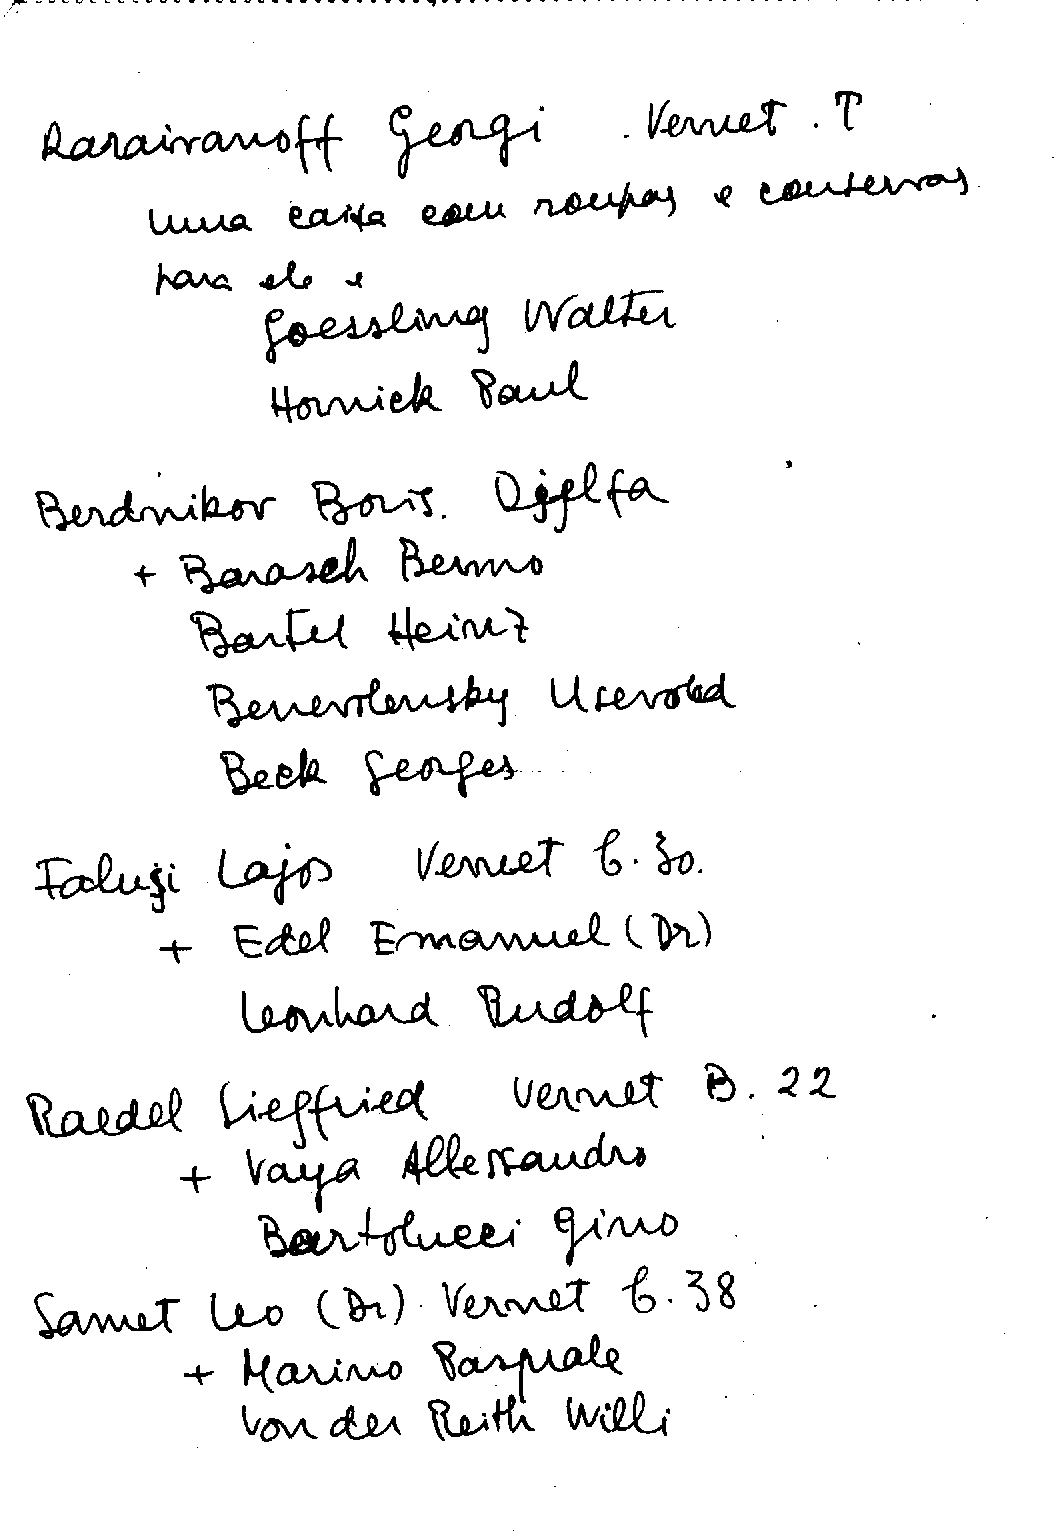 Karaivanoff Georgi . Vernet . T
uma caixa com roupas e conservas
para ele e
Goessling Walter
Hornick Paul
Berdnikov Boris. Djelfa
+ Barasch Benno
Bartel Heinz
Benevolensky Usevolod
Beck Georges
Falusi Lajos Vernet C. 30.
+ Edel Emanuel (Dr)
Leonhard Rudolf
Raedel Siegfried Vernet B. 22
+ Vaya Allessandro
Bartolucci Gino
Samet Leo (Dr) Vernet C. 38
+ Marino Pasquale
Von der Reith Willi